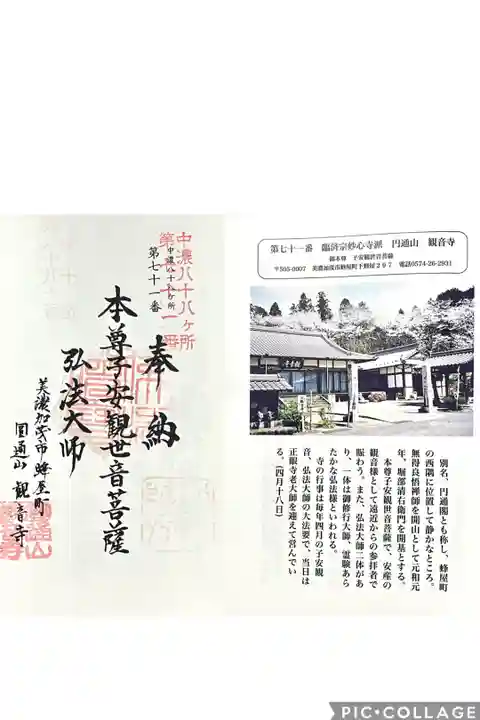 中濃八十八ヶ所
第七十一番
中濃八十八ヶ所
第七十一番
奉納
本尊子安観世音菩薩
弘法大師
美濃加茂市蜂屋町
圓通山 観音寺
第七十一番 臨済宗妙心寺派 円通山 観音寺
御本尊 子安観世音菩薩
〒505-0007 美濃加茂市蜂屋町下蜂屋297 電話0574-26-2931
別名、円通閣とも称し、蜂屋町
の西隅に位置して静かなところ。
無得良悟禅師を開山として元和元
年、堀部清右衛門を開基とする。
本尊子安観世音菩薩で、安産の
観音様として遠近からの参拝者で
賑わう。また、弘法大師二体があ
り、一体は御修行大師、霊験あら
たかな弘法様といわれる。
寺の行事は毎年四月の子安観
音、弘法大師の大法要で、当日は
正眼寺老大師を迎えて営んでい
る。（四月十八日）
PIC•COLLAGE